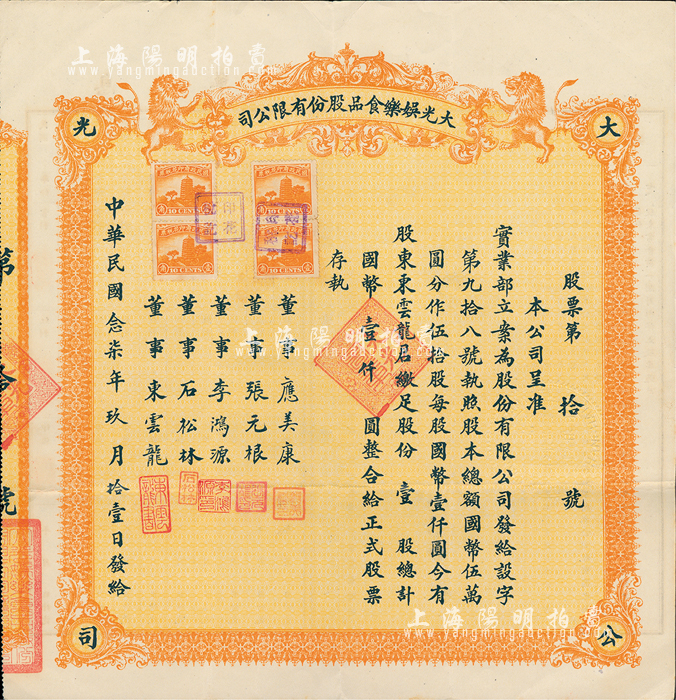 上海陽明拍賣
www.yangmingauction.com
大光娛樂食品股份有限公司
大
光
公
司
股票第拾號
本公司呈准
實業部立案為股份有限公司發給設字
第九拾八號執照股本總額國幣伍萬
圓分作伍拾股每股國幣壹仟圓今有
股東東雲龍君繳足股份壹股總計
國幣壹仟圓整合給正式股票
存執
董事應美康
董事張元根
董事李鴻源
董事石松林
董事東雲龍
中華民國念柒年玖月拾壹日發給
10 CENTS
10 CENTS
10 CENTS
10 CENTS
第拾號
上海陽明拍賣
www.yangmingauction.com
上海陽明拍賣
www.yangmingauction.com